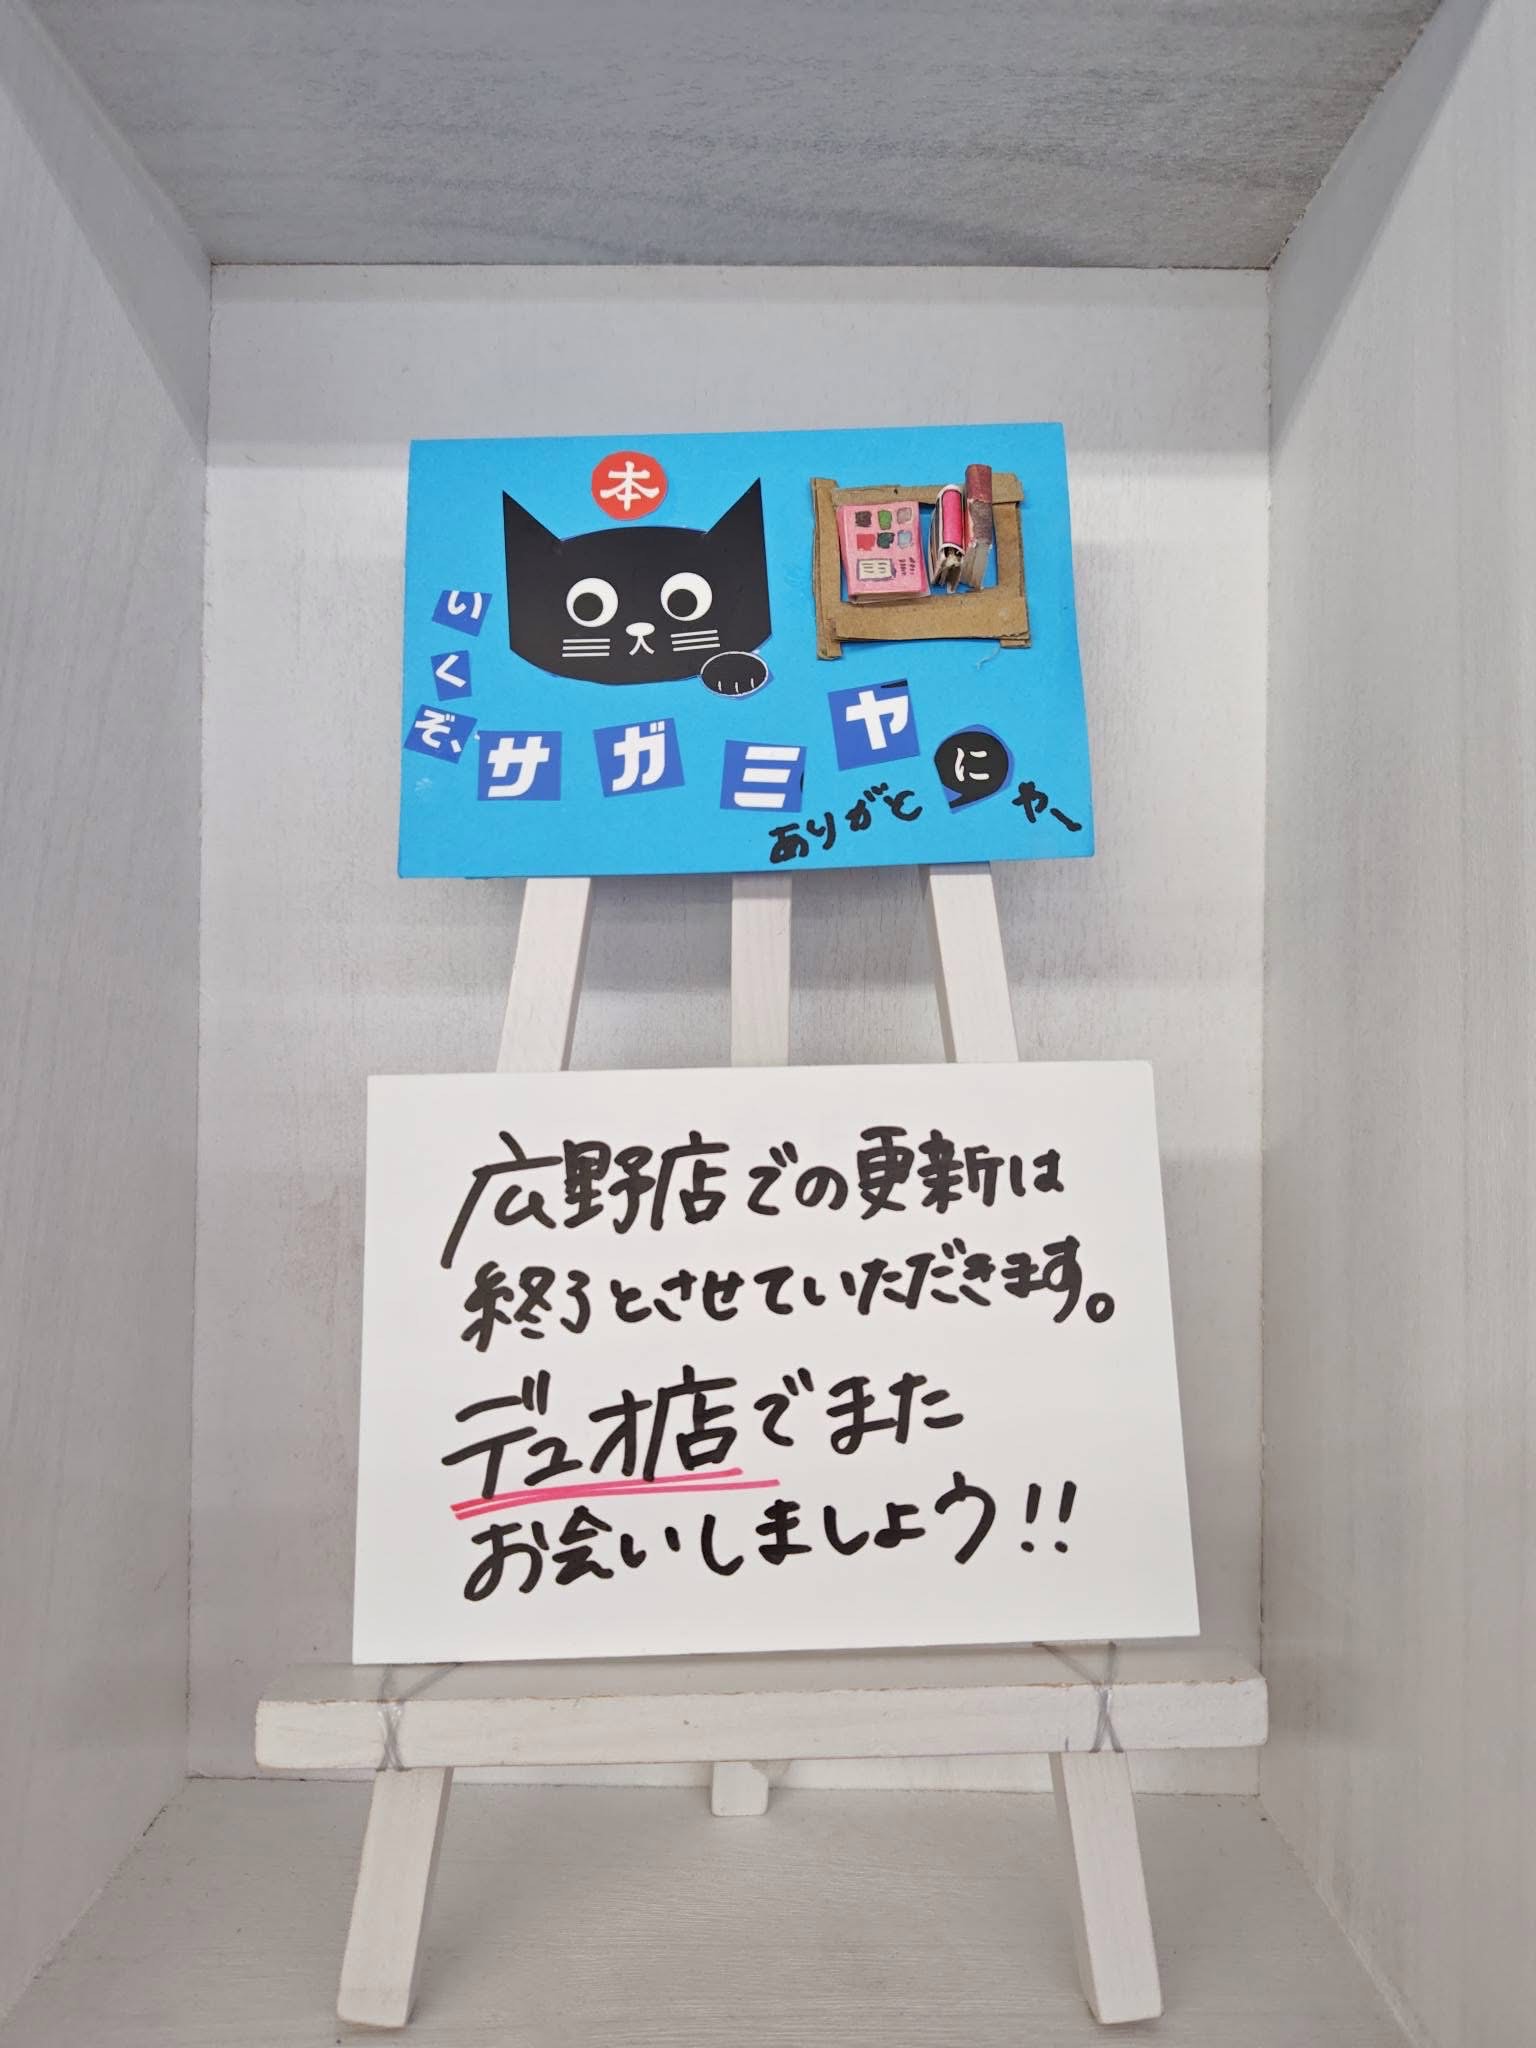 本
いくぞ、
サガミヤ
ありがとにゃー
広野店での更新は
終了とさせていただきます。
デュオ店でまた
お会いしましょう!!